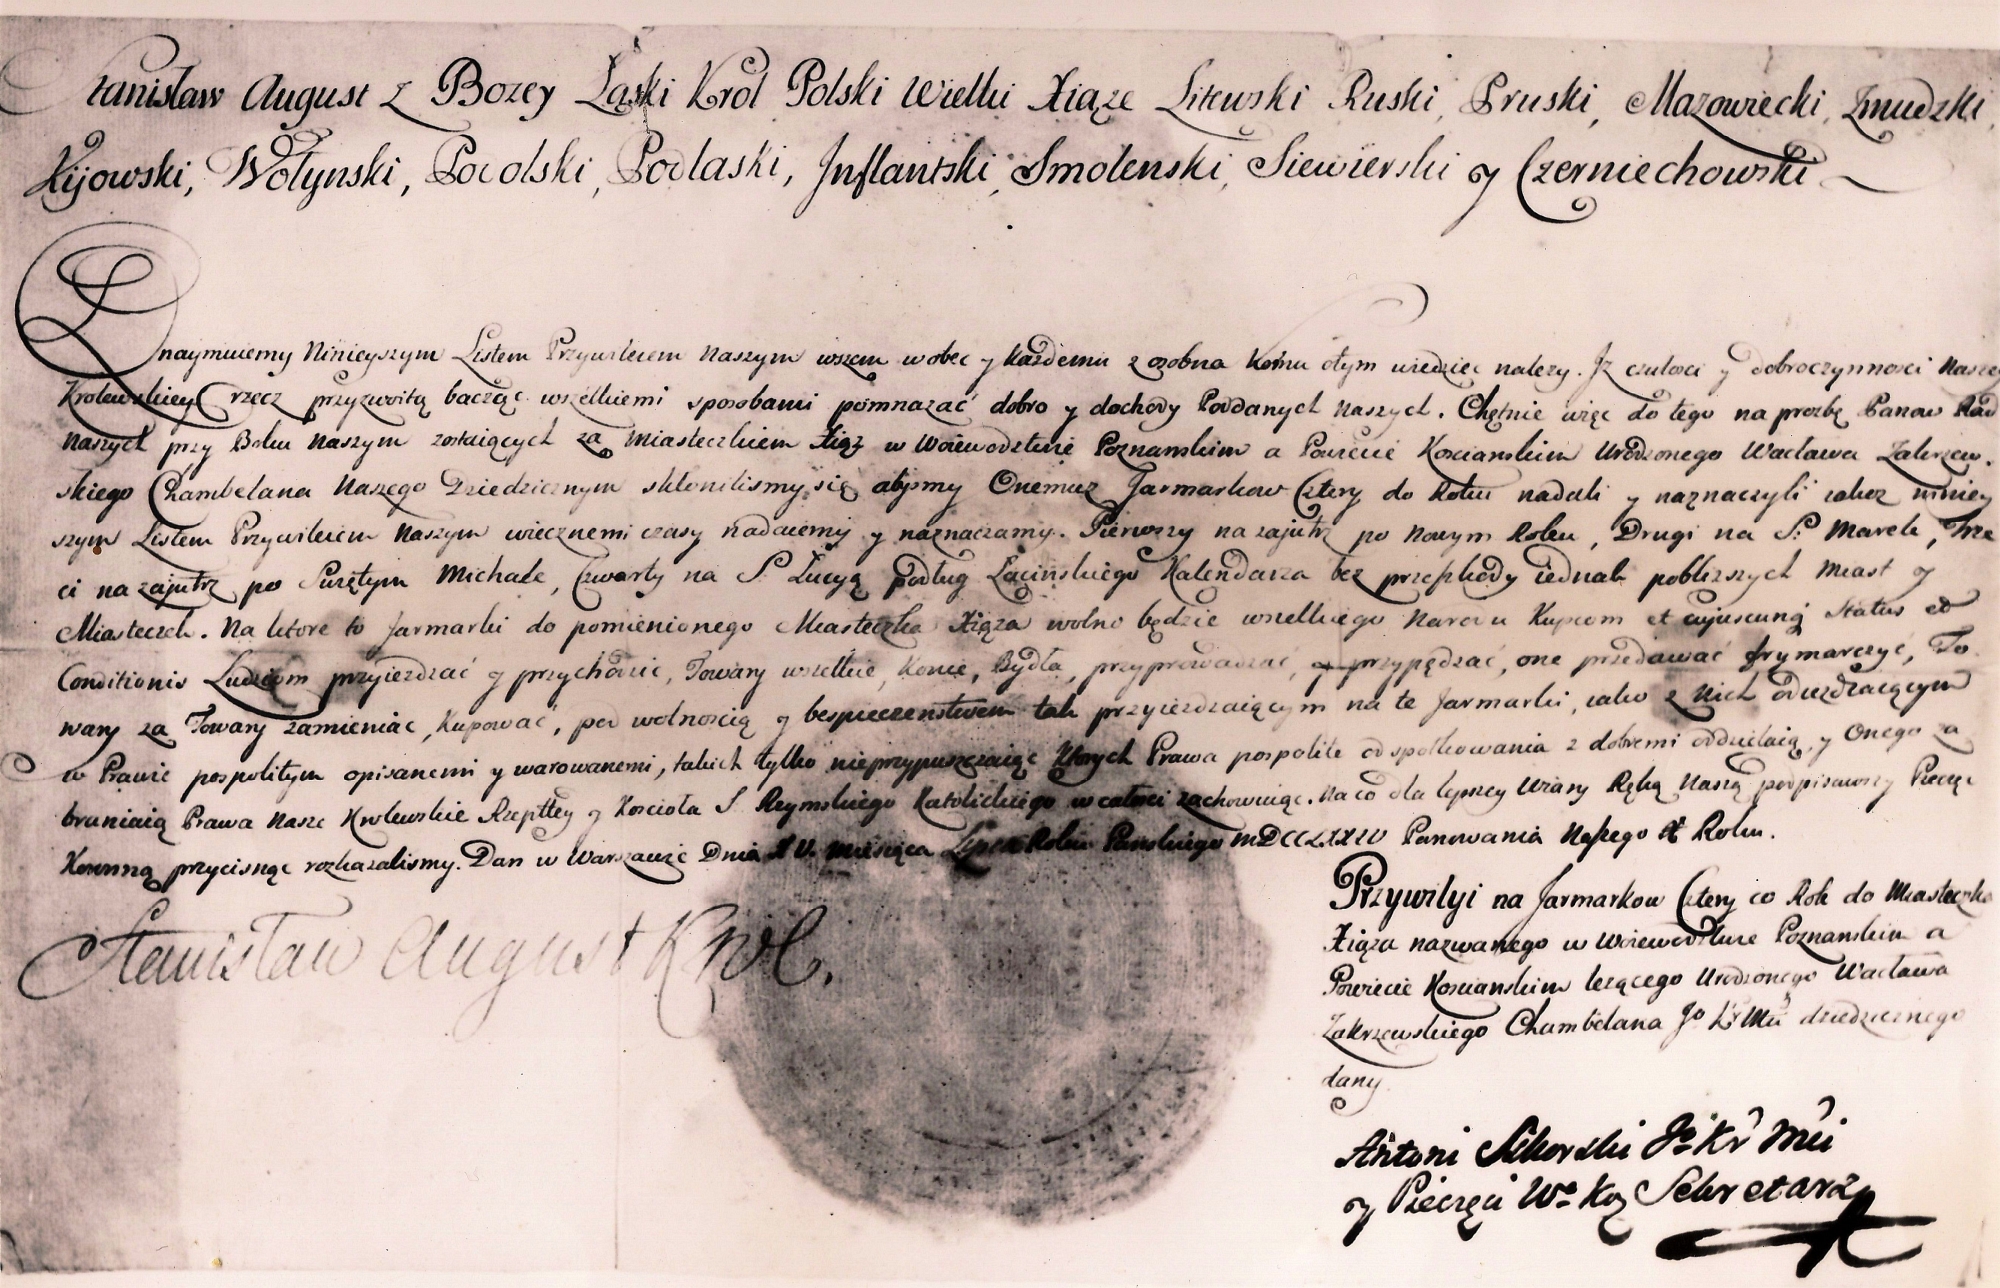 Stanisław August z Bozey Łaski Król Polski Wielki Xiąze Litewski Ruski, Pruski, Mazowiecki, Zmudzki,
Kijowski, Wołynski, Podolski, Podlaski, Jnflantski, Smolenski, Siewierski y Czerniechowski
Znaymuiemy Ninieyszym Listem Przywileiem Naszym wszem wobec y każdemu z osobna komu otym wiedziec nalezy. Jz czułosci y dobroczynnosci Naszey
Krolewskiey rzecz przyzwoitą bacząc wszelkiemi sposobami pomnazać dobro y dochody Poddanych Naszych. Chętnie więc do tego na prozbę Panow Rad
Naszych przy Boku Naszym zostaiących za Miasteczkiem Xiąz w Woiewodztwie Poznanskim a Powiecie Kosciańskim Urodzonego Wacława Zakrzew.
skiego Chambelana Naszego Dziedzicznym skłonilismy się abysmy Onemuz Jarmarkow Cztery do Roku nadali y naznaczyli iakoz niniey
szym Listem Przywileiem Naszym wiecznemi czasy nadaiemy y naznaczamy. Pierwszy na zajutrz po Nowym Roku, Drugi na S. Marek, Trze
ci na zajutrz po Swiętym Michale, Czwarty na S. Łucyą podług Łacińskiego Kalendarza bez przeszkody iednak poblizszych Miast y
Miasteczek. Na ktore to Jarmarki do pomienionego Miasteczka Xiąza wolno będzie wszelkiego Narodu Kupcom et cujuscunq Status et
Conditionis Ludziom przyiezdzać y przychodzic, Towary wszelkie, Konie, Bydła, przyprowadzać, y przypędzać, one przedawać frymarczyć, To
wary za Towary zamieniac, Kupować, pod wolnoscią y bespieczenstwem tak przyiezdzaiącym na te Jarmarki, iako z nich odiezdzaiącym
w Prawie pospolitym opisanemi y warowanemi, takich tylko nieprzypuszczaiąc ktorych Prawa pospolite od społkowania z dobremi oddzielaią, y Onego za
braniaią Prawa Nasze Krolewskie Rzeptłey y Koscioła S. Rzymskiego Katolickiego w całosci zachowuiąc. Na co dla lepszey Wiary Ręką Naszą podpisawszy Pieczęc
Koronną przycisnąc rozkazalismy. Dan w Warszawie Dnia XV. Miesiąca Lipca Roku Panskiego MDCCLXXIV Panowania Naszego X Roku.
Stanisław August Krol.
Przywilyi na Jarmarkow Cztery co Rok do Miasteczka
Xiąza nazwanego w Woiewodztwie Poznanskim a
Powiecie Kosciańskim lezącego Urodzonego Wacława
Zakrzewskiego Chambelana Jo Kr Mci dziedzicznego
dany
Antoni Sikorski Jo Kr Mci
y Pieczęci Wo Koy Sekretarz